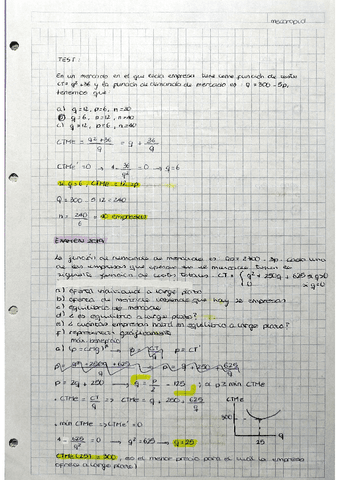 microeco
TEST:
En un mercado en el que cada empresa tiene como función de costes
CT = q² + 36 y la función de demanda de mercado es Q = 300 - 5p,
tenemos que:
a) q = 12, p = 6, n = 20
b) q = 6, p = 12, n = 40
c) q = 12, p = 6, n = 40
CTMe = q² + 36 / q = q + 36/q
CTMe' = 0 → 1 - 36/q² = 0 → q = 6
si q = 6, CTMe = 12 = p
Q = 300 - 5·12 = 240
n = 240/6 = 40 empresas
EXAMEN 2019
La función de demanda de mercado es
cada una
de las empresas que operan en el mercado tienen la
siguiente función de costes totales: CT = { q² + 250q + 625 si q>0
0 si q=0
a) oferta individual a largo plazo
b) oferta de mercado sabiendo que hay 50 empresas
c) equilibrio de mercado
d) ¿es equilibrio a largo plazo?
e) ¿cuántas empresas habrá en equilibrio a largo plazo?
f) representar gráficamente
máx. beneficio
p = 2q + 250 → q = p/2 - 125 ; si p ≥ mín CTMe
· CTMe = CT/q ⇒ CTMe = q + 250 + 625/q
· mín CTMe ⇒ CTMe' = 0
1 - 625/q² = 0 → q² = 625 → q = 25
CTMe (25) = 300, es el menor precio para el cual la empresa
opera a largo plazo
CTMe
300
25
q